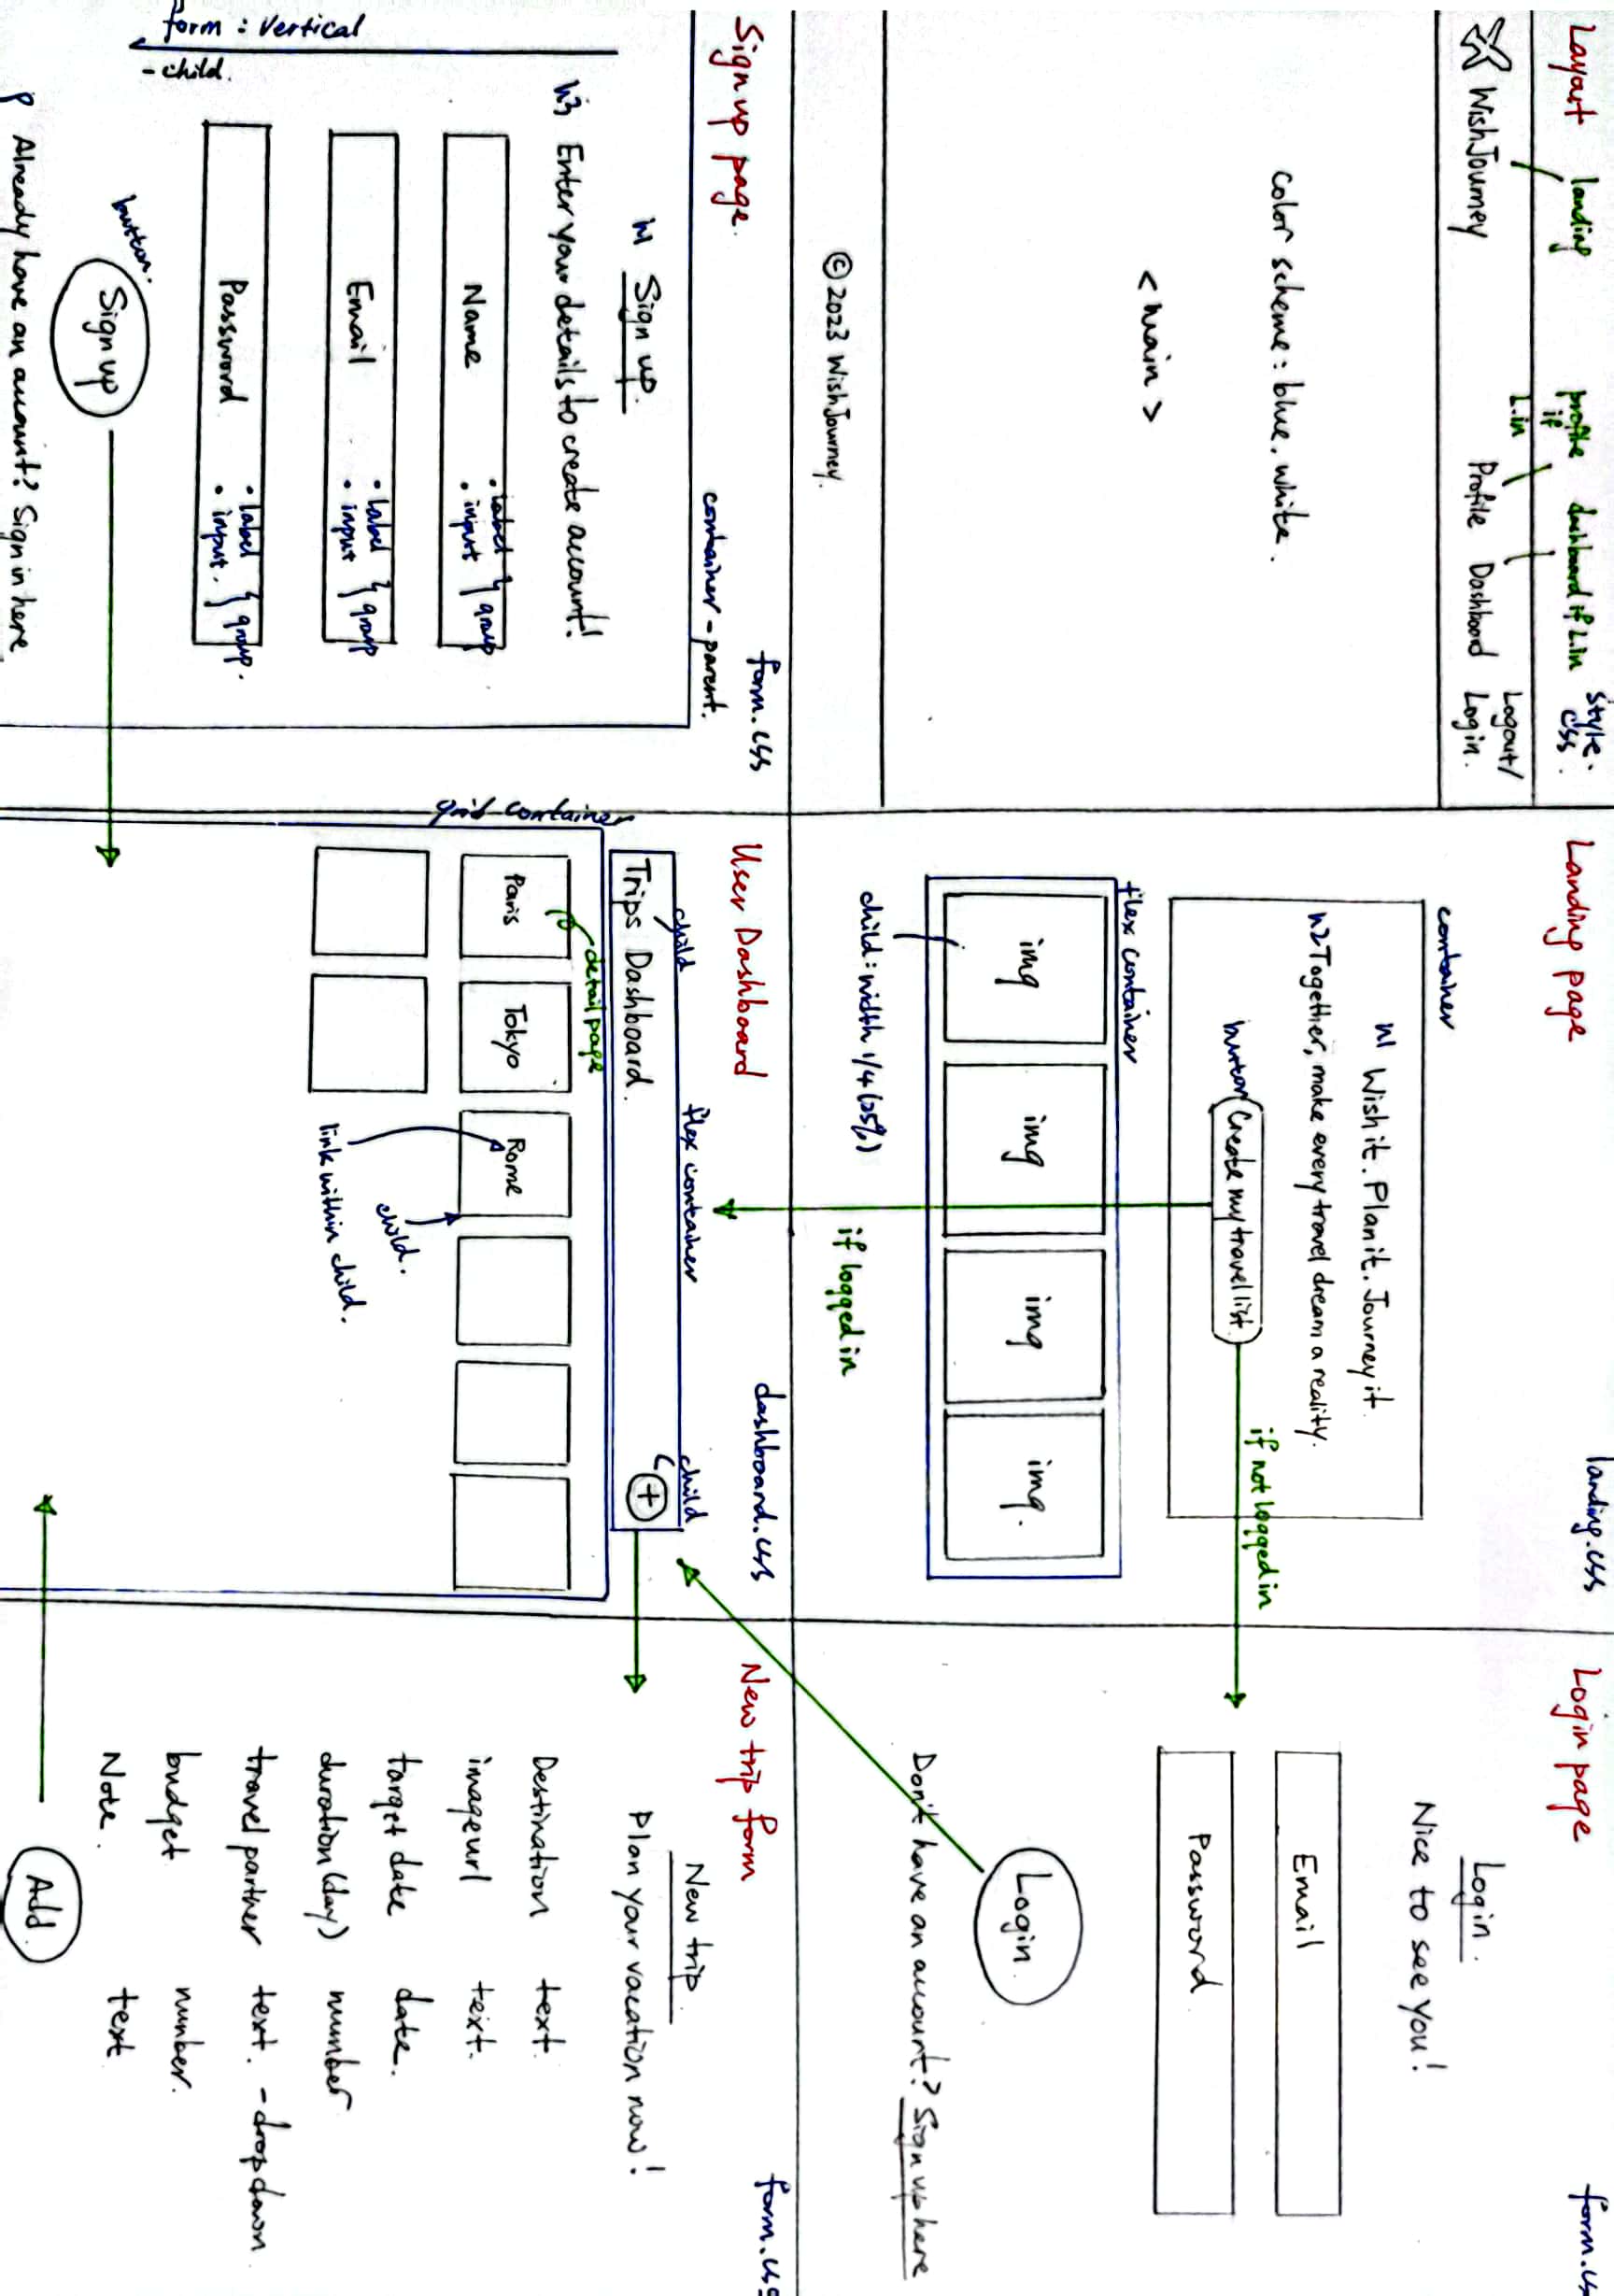 Layout
landing
profile
if
L.in
dashboard if L.in
style.
css.
WishJourney
Profile
Dashboard
Logout/
Login.
color scheme: blue. white.
< main >
© 2023 WishJourney.
Landing page
landing.css
container
h1 Wish it. Plan it. Journey it
h2 Together, make every travel dream a reality.
button Create my travel list
if not logged in
flex container
img
img
img
img.
child: width 1/4 (25%)
if logged in
Login page
Login.
Nice to see you!
Email
Password
Login
Don't have an account? Sign up here
Sign up page
form.css
container - parent.
h1 Sign up.
h3 Enter your details to create account!
Name
• label
• input
group
Email
• label
• input
group
Password
• label
• input.
group.
form: Vertical
- child.
button.
Sign up
p Already have an account? Sign in here
User Dashboard
dashboard.css
child
flex container
child
Trips Dashboard.
+
grid container
detail page
Paris
Tokyo
Rome
child.
link within child.
New trip form
New trip
Plan your vacation now!
Destination text
imageurl text.
target date date.
duration (day) number
travel partner text. - drop down
budget number.
Note. text
Add